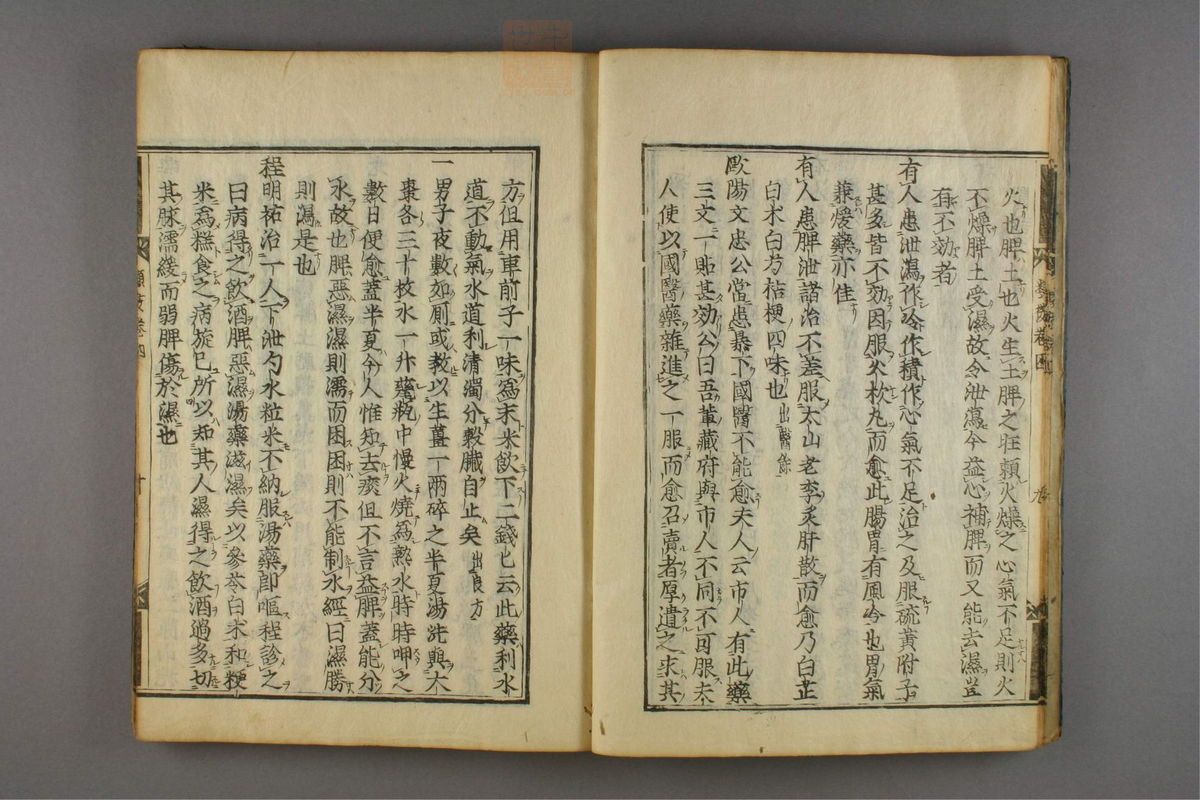 火也脾土也火生土脾之旺賴火燥之心氣不足則火
不燥脾土受濕故令泄瀉今益心補脾而又能去濕豈
有不効者
有人患泄瀉作冷作積作心氣不足治之及服硫黃附子
甚多皆不効因服火枚丸而愈此腸胃有風冷也胃氣
兼煖藥亦佳
有人患脾泄諸治不差服太山老李炙肝散而愈乃白芷
白朮白芍桔梗四味也出醫餘
歐陽文忠公當患暴下國醫不能愈夫人云市人有此藥
三文一貼甚効公曰吾輩藏府與市人不同不可服夫
人使以國醫藥雜進之一服而愈召賣者厚遺之求其
方但用車前子一味爲末米飲下二錢匕云此藥利水
道不動氣水道利清濁分穀臟自止矣出良方
一男子夜數如厠或敎以生薑一兩碎之半夏湯洗與大
棗各三十枚水一升甆瓶中慢火燒爲熟水時時呷之
數日便愈蓋半夏今人惟知去痰但不言益脾蓋能分
水故也脾惡濕濕則濡而困困則不能制水經曰濕勝
則瀉是也
程明祐治一人下泄勺水粒米不納服湯藥卽嘔程診之
曰病得之飲酒脾惡濕湯藥滋濕矣以參苓白朮和粳
米爲糕食之病旋已所以知其人濕得之飲酒過多切
其脉濡緩而弱脾傷於濕也
類案卷四
十